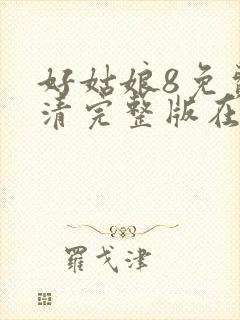 好姑娘8免
清完整版在
羅戈津